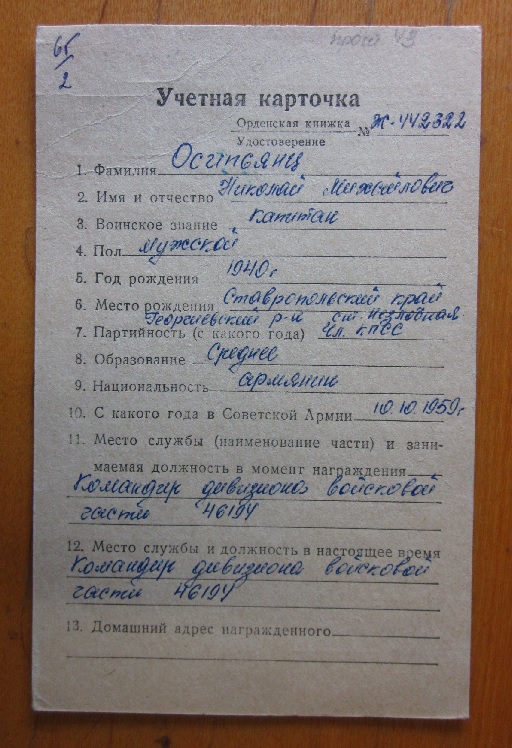 65/2
Учетная карточка
Орденская книжка
Удостоверение № Ж-442322
1. Фамилия Осипьянц
2. Имя и отчество Николай Михайлович
3. Воинское звание капитан
4. Пол мужской
5. Год рождения 1940г.
6. Место рождения Ставропольский край
Георгиевский р-н ст. Незлобная
7. Партийность (с какого года) Чл. КПСС
8. Образование Среднее
9. Национальность армянин
10. С какого года в Советской Армии 10.10.1959г.
11. Место службы (наименование части) и зани-
маемая должность в момент награждения
Командир дивизиона войсковой
части 46194
12. Место службы и должность в настоящее время
Командир дивизиона войсковой
части 46194
13. Домашний адрес награжденного